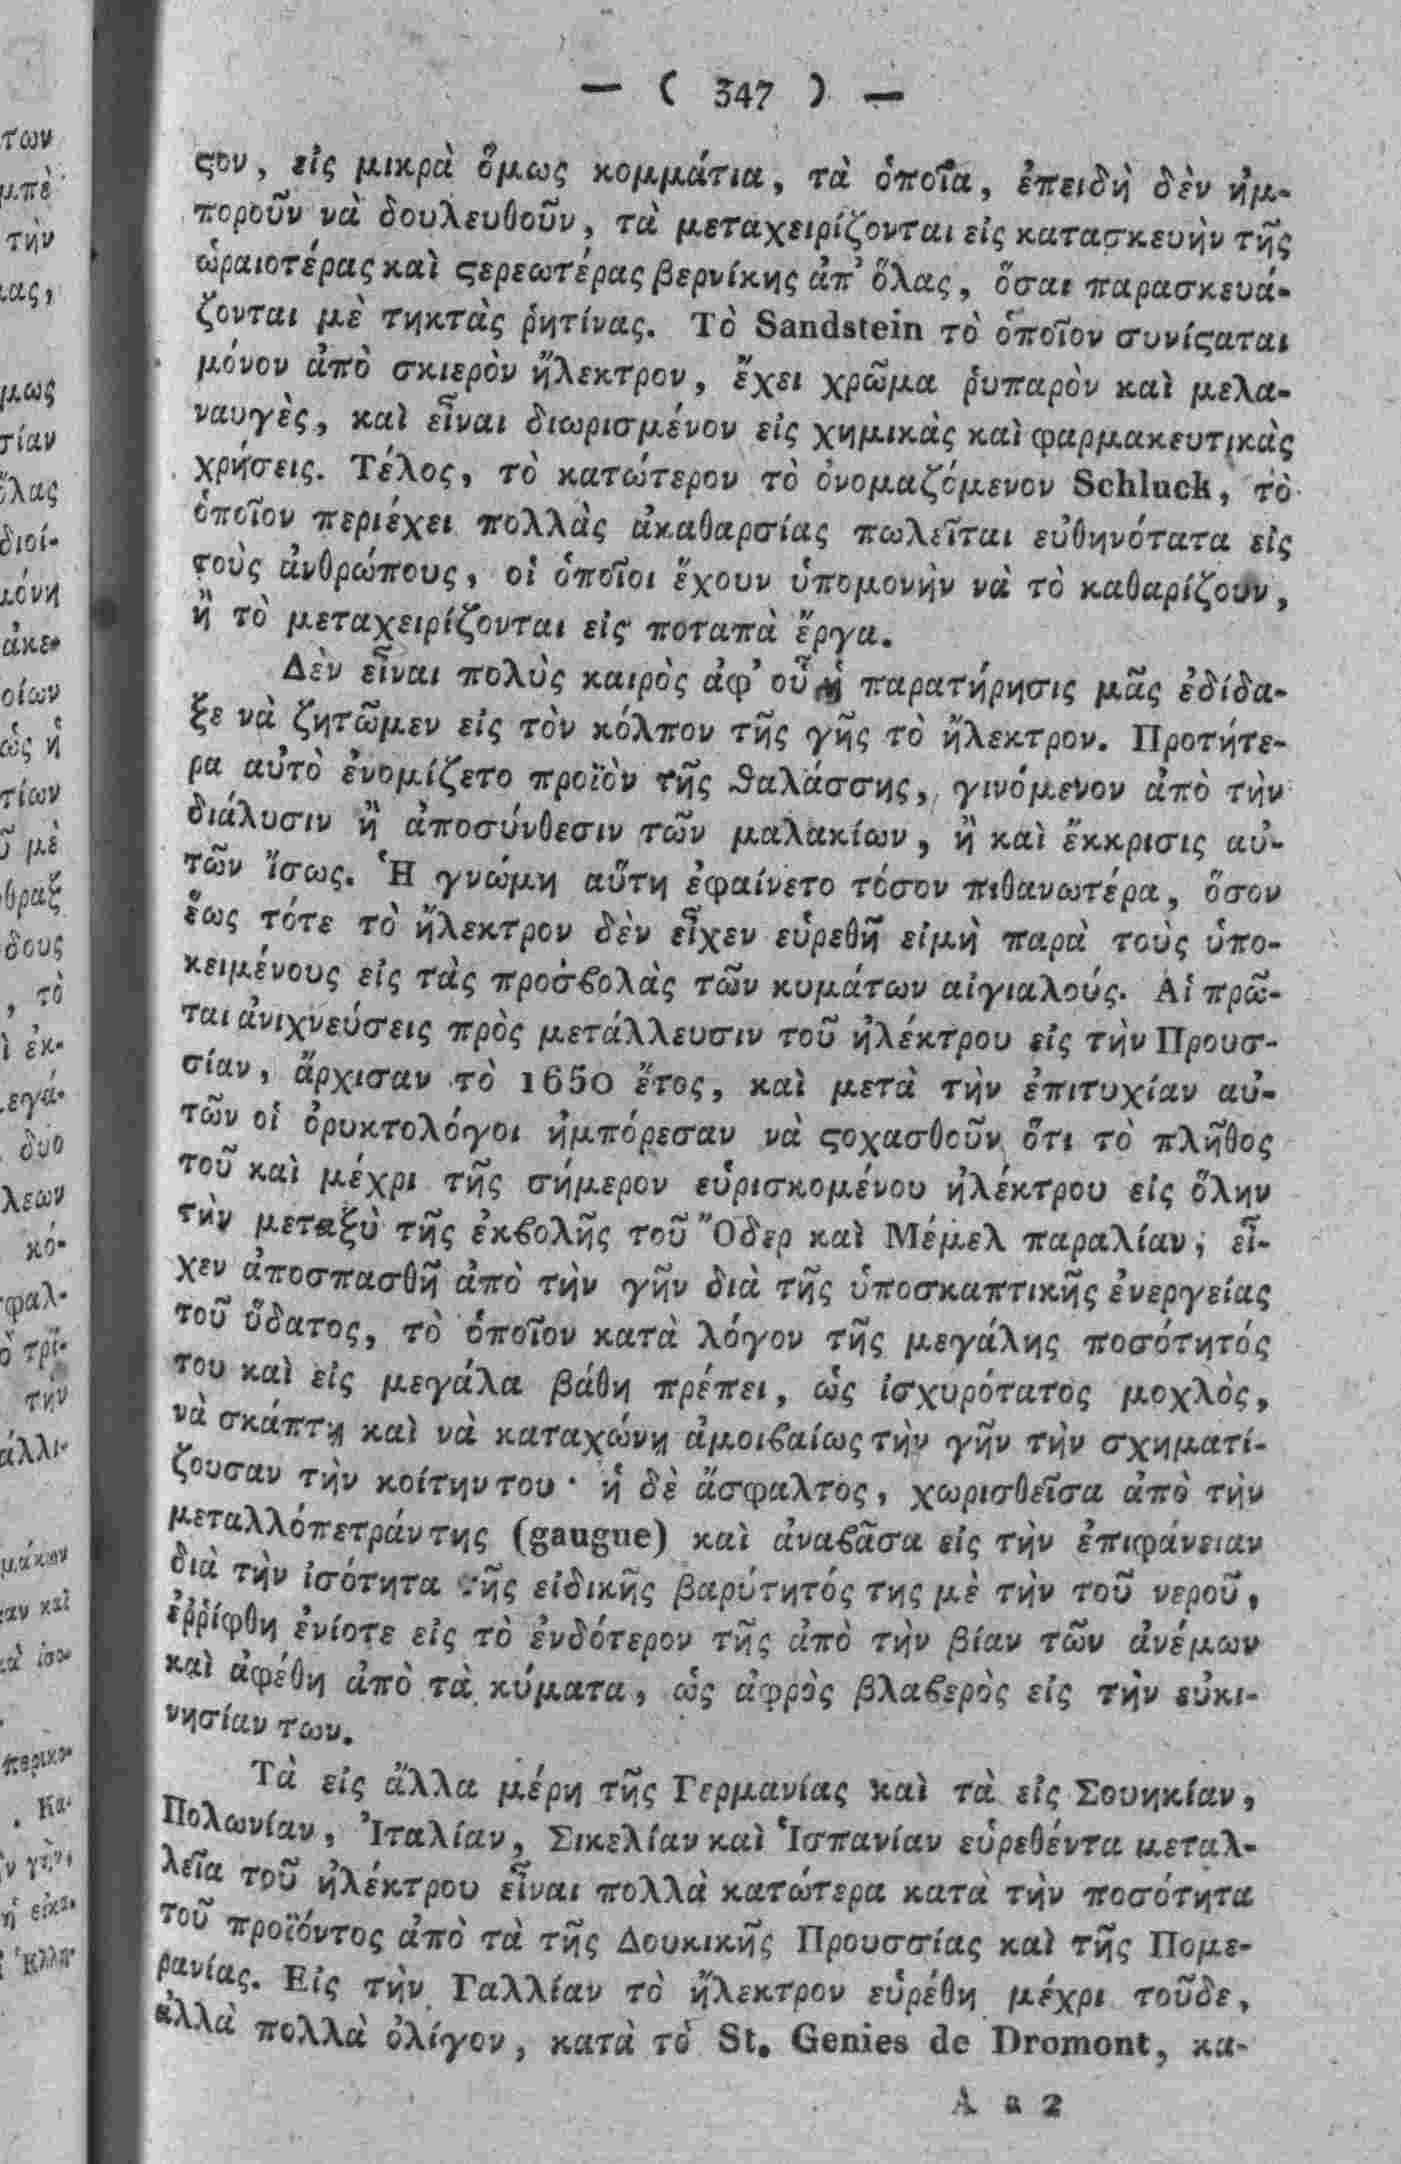 — ( 347 ) —
ϛον, εἰς μικρὰ ὅμως κομμάτια, τὰ ὁποῖα, ἐπειδὴ δὲν ἠμ-
ποροῦν νὰ δουλευθοῦν, τὰ μεταχειρίζονται εἰς κατασκευὴν τῆς
ὡραιοτέρας καὶ ϛερεωτέρας βερνίκης ἀπ' ὅλας, ὅσαι παρασκευά-
ζονται μὲ τηκτὰς ῥητίνας. Τὸ Sandstein τὸ ὁποῖον συνίϛαται
μόνον ἀπὸ σκιερὸν ἤλεκτρον, ἔχει χρῶμα ῥυπαρὸν καὶ μελα-
ναυγὲς, καὶ εἶναι διωρισμένον εἰς χημικὰς καὶ φαρμακευτικὰς
χρήσεις. Τέλος, τὸ κατώτερον τὸ ὀνομαζόμενον Schluck, τὸ
ὁποῖον περιέχει πολλὰς ἀκαθαρσίας πωλεῖται εὐθηνότατα εἰς
τοὺς ἀνθρώπους, οἱ ὁποῖοι ἔχουν ὑπομονὴν νὰ τὸ καθαρίζουν,
ἢ τὸ μεταχειρίζονται εἰς ποταπὰ ἔργα.
Δὲν εἶναι πολὺς καιρὸς ἀφ' οὗ ἡ παρατήρησις μᾶς ἐδίδα-
ξε νὰ ζητῶμεν εἰς τὸν κόλπον τῆς γῆς τὸ ἤλεκτρον. Προτήτε-
ρα αὐτὸ ἐνομίζετο προϊὸν τῆς ϑαλάσσης, γινόμενον ἀπὸ τὴν
διάλυσιν ἢ ἀποσύνθεσιν τῶν μαλακίων, ἢ καὶ ἔκκρισις αὐ-
τῶν ἴσως. Ἡ γνώμη αὕτη ἐφαίνετο τόσον πιθανωτέρα, ὅσον
ἕως τότε τὸ ἤλεκτρον δὲν εἶχεν εὑρεθῆ εἰμὴ παρὰ τοὺς ὑπο-
κειμένους εἰς τὰς προσϐολὰς τῶν κυμάτων αἰγιαλούς. Αἱ πρῶ-
ται ἀνιχνεύσεις πρὸς μετάλλευσιν τοῦ ἠλέκτρου εἰς τὴν Προυσ-
σίαν, ἄρχισαν τὸ 1650 ἔτος, καὶ μετὰ τὴν ἐπιτυχίαν αὐ-
τῶν οἱ ὀρυκτολόγοι ἠμπόρεσαν νὰ ϛοχασθοῦν ὅτι τὸ πλῆθος
τοῦ καὶ μέχρι τῆς σήμερον εὑρισκομένου ἠλέκτρου εἰς ὅλην
τὴν μεταξὺ τῆς ἐκϐολῆς τοῦ Ὄδερ καὶ Μέμελ παραλίαν, εἶ-
χεν ἀποσπασθῆ ἀπὸ τὴν γῆν διὰ τῆς ὑποσκαπτικῆς ἐνεργείας
τοῦ ὕδατος, τὸ ὁποῖον κατὰ λόγον τῆς μεγάλης ποσότητός
του καὶ εἰς μεγάλα βάθη πρέπει, ὡς ἰσχυρότατος μοχλὸς,
νὰ σκάπτῃ καὶ νὰ καταχώνῃ ἀμοιϐαίως τὴν γῆν τὴν σχηματί-
ζουσαν τὴν κοίτην του · ἡ δὲ ἄσφαλτος, χωρισθεῖσα ἀπὸ τὴν
μεταλλόπετράν της (gaugue) καὶ ἀναϐᾶσα εἰς τὴν ἐπιφάνειαν
διὰ τὴν ἰσότητα τῆς εἰδικῆς βαρύτητός της μὲ τὴν τοῦ νεροῦ,
ἐῤῥίφθη ἐνίοτε εἰς τὸ ἐνδότερον τῆς ἀπὸ τὴν βίαν τῶν ἀνέμων
καὶ ἀφέθη ἀπὸ τὰ κύματα, ὡς ἀφρὸς βλαϐερὸς εἰς τὴν εὐκι-
νησίαν των.
Τὰ εἰς ἄλλα μέρη τῆς Γερμανίας καὶ τὰ εἰς Σουηκίαν,
Πολωνίαν, Ἰταλίαν, Σικελίαν καὶ Ἱσπανίαν εὑρεθέντα μεταλ-
λεῖα τοῦ ἠλέκτρου εἶναι πολλὰ κατώτερα κατὰ τὴν ποσότητα
τοῦ προϊόντος ἀπὸ τὰ τῆς Δουκικῆς Προυσσίας καὶ τῆς Πομε-
ρανίας. Εἰς τὴν Γαλλίαν τὸ ἤλεκτρον εὑρέθη μέχρι τοῦδε,
ἀλλὰ πολλὰ ὀλίγον, κατὰ τὸ St. Genies de Dromont, κα-
A a 2